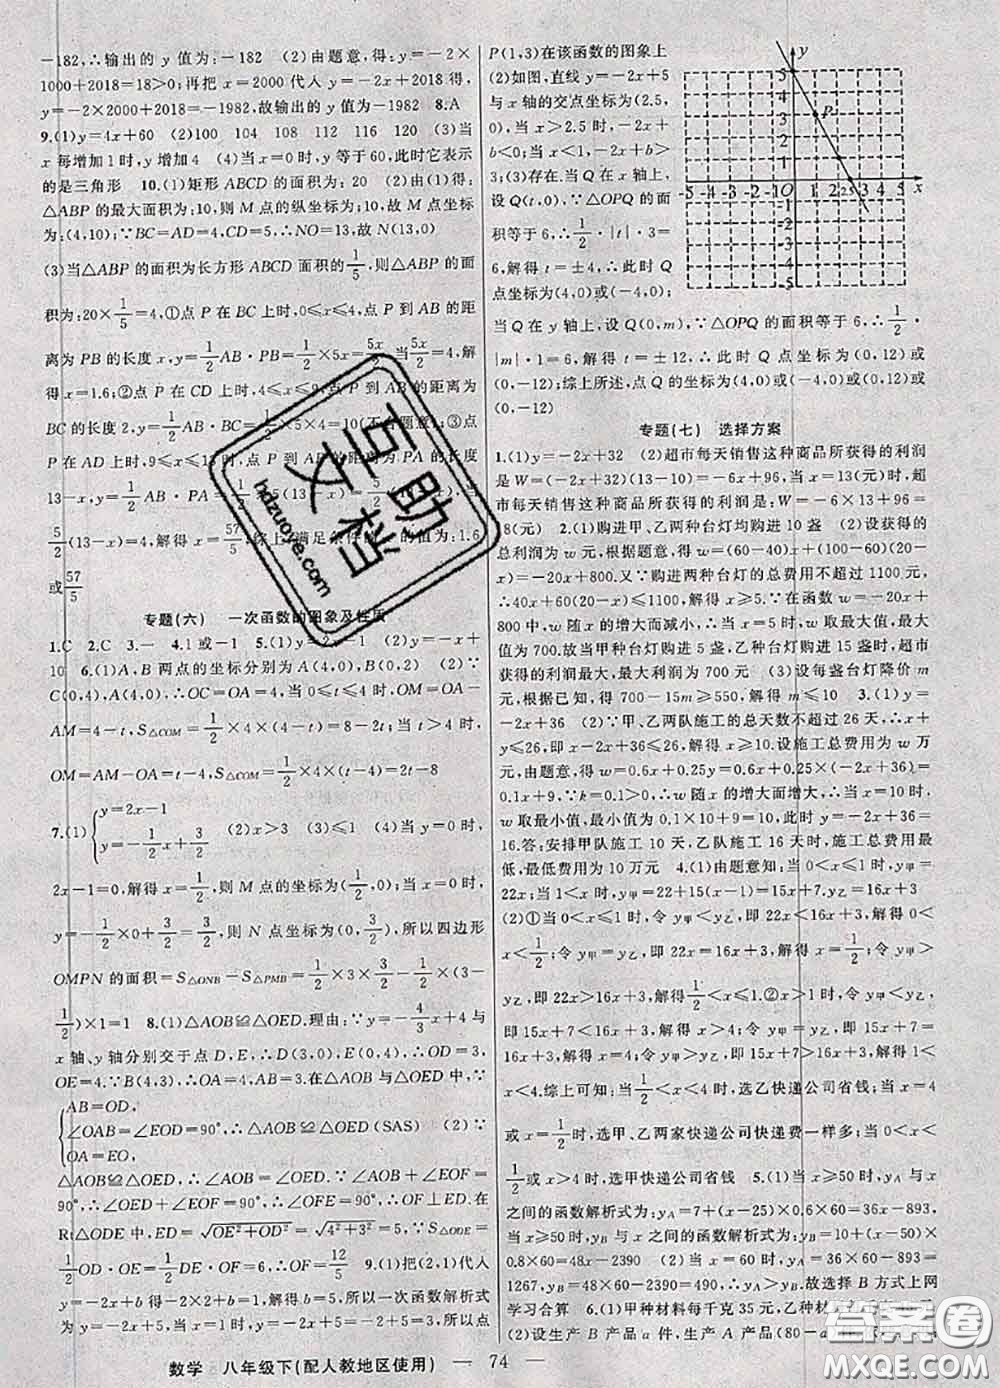 -182,∴输出的 y 值为:-182 (2)由题意,得:y=-2×
1000+2018=18>0;再把 x=2000代人 y=-2x+2018,得,
y=-2×2000+2018=-1982,故输出的 y 值为-1982 8.A
9.(1)y=4x+60 (2)100 104 108 112 116 120 (3)当
x 每增加1时,y 增加4 (4)当 x=0时,y 等于60,此时它表示
的是三角形 10.(1)矩形 ABCD 的面积为:20 (2)由(1)得:
△ABP 的最大面积为:10,则 M 点的纵坐标为:10,故 M 点坐标
为:(4,10);∵BC=AD=4,CD=5,∴NO=13,故 N(13,0)
(3)当△ABP 的面积为长方形 ABCD 面积的1/5,则△ABP 的面
积为:20×1/5=4,①点 P 在 BC 上时,0≤x≤4,点 P 到 AB 的距
离为 PB 的长度 x,y=1/2AB·PB=1/2×5x=5x/2,当5x/2=4,解
得 x=1.6;②点 P 在 CD 上时,4≤x≤9,点 P 到 AB 的距离为
BC 的长度 2,y=1/2AB·PB=1/2×5×4=10(不合题意);③点
P 在 AD 上时,9≤x≤13时,点 P 到 AB 的距离为 PA 的长度
13-x,y=1/2AB·PA=1/2×5(13-x)=
5/2(13-x)=4,解得 x=57/5,综上,满足条件的 x 的值为:1.6
或57/5
专题(六) 一次函数的图象及性质
1.C 2.C 3.一 4.1或-1 5.(1)y=2x-1 (2)y=-x+
10 6.(1)A,B 两点的坐标分别为A(4,0),B(0,2) (2)∵
C(0,4),A(4,0)∴OC=OA=4,当0≤t≤4时,OM=OA-
AM=4-t,S△COM=1/2×4×(4-t)=8-2t;当 t>4时,
OM=AM-OA=t-4,S△COM=1/2×4×(t-4)=2t-8
7.(1){y=2x-1 y=-1/2x+3/2 (2)x>3 (3)≤1 (4)当 y=0时,
2x-1=0,解得 x=1/2,则 M 点的坐标为(1/2,0);当 x=0时,
y=-1/2×0+3/2=3/2,则 N 点坐标为(0,3/2),所以四边形
OMPN 的面积=S△ONB-S△PMB=1/2×3×3/2-1/2×(3-
1/2)×1=1 8.(1)△AOB≌△OED.理由:∵y=-4/3x+4与
x 轴、y 轴分别交于点 D,E,∴D(3,0),E(0,4),∴OD=3,
OE=4.∵B(4,3),∴OA=4,AB=3.在△AOB与△OED 中,∵
{AB=OD, ∠OAB=∠EOD=90°, OA=EO, ∴△AOB≌△OED(SAS) (2)∵
△AOB≌△OED,∴∠AOB=∠OED.∵∠AOB+∠EOF=
90°,∴∠OED+∠EOF=90°,∴∠OFE=90°;∵在
Rt△ODE 中,DE=√OE²+OD²=√4²+3²=5,∵S△ODE=
1/2OD·OE=1/2DE·OF=6,∴OF=12/5 9.(1)把(2,1)代人
y=-2x+b 得-2×2+b=1,解得 b=5,所以一次函数解析式
为 y=-2x+5,当 x=1时,y=-2x+5=-2+5=3,所以点
P(1,3)在该函数的图象上
(2)如图,直线 y=-2x+5
与 x 轴的交点坐标为(2.5,
0),当 x>2.5时,-2x+
b<0;当 x<1时,-2x+b>
3;(3)存在.当 Q 在 x 轴上,
设 Q(t,0),∵△OPQ 的面
积等于6,∴1/2·|t|·3=
6,解得 t=±4,此时 Q
点坐标为(4,0)或(-4,0);
当 Q 在 y 轴上,设 Q(0,m),∵△OPQ 的面积等于6,∴1/2·
|m|·1=6,解得 t=±12,∴此时 Q 点坐标为(0,12)或
(0,-12);综上所述,点 Q 的坐标为(4,0)或(-4,0)或(0,12)或
(0,-12)
y
5
4
3
2
1
P
-5 -4 -3 -2 -1 O 1 2 2.5 3 4 5 x
-1
-2
-3
-4
-5
专题(七) 选择方案
1.(1)y=-2x+32 (2)超市每天销售这种商品所获得的利润
是 W=(-2x+32)(13-10)=-6x+96,当 x=13(元)时,超
市每天销售这种商品所获得的利润是:W=-6×13+96=
18(元) 2.(1)购进甲、乙两种台灯均购进10盏 (2)设获得的
总利润为 w 元,根据题意,得:w=(60-40)x+(100-60)(20-
x)=-20x+800.又∵购进两种台灯的总费用不超过1100元,
∴40x+60(20-x)≤1100,解得 x≥5.∵在函数 w=-20x+
800中,w 随 x 的增大而减小,∴当 x=5时,w 取最大值,最大
值为700.故当甲种台灯购进5盏,乙种台灯购进15盏时,超市
获得的利润最大,最大利润为700元. (3)设每盏台灯降价 m
元,根据已知,得 700-15m≥550,解得 m≤10 3.(1)y=
-2x+36 (2)∵甲、乙两队施工的总天数不超过26天,∴x+
y≤26,即 x-2x+36≤26,解得 x≥10.设施工总费用为 w 万
元,由题意,得 w=0.6x+0.25y=0.6x+0.25×(-2x+36)=
0.1x+9,∵k=0.1>0,∴w 随 x 的增大而增大,∴当 x=10时,
w 取最小值,最小值为 0.1×10+9=10,此时 y=26-10=
16.答:安排甲队施工10天,乙队施工16天时,施工总费用最
低,最低费用为10万元 4.(1)由题意知:当0<x≤1时,y甲=
22x;当1<x 时,y甲=22+15(x-1)=15x+7.y乙=16x+3
(2)①当0<x≤1时,令 y甲<y乙,即22x<16x+3,解得0<x
<1/2;令 y甲=y乙,即22x=16x+3,解得 x=1/2;令 y甲>
y乙,即22x>16x+3,解得1/2<x≤1.②x>1时,令 y甲<y乙,
即15x+7<16x+3,解得 x>4;令 y甲=y乙,即15x+7=
16x+3,解得 x=4;令 y甲>y乙,即15x+7>16x+3,解得 x<
4.综上可知:当1/2<x<4时,选乙快递公司省钱;当 x=4
或 x=1/2时,选甲、乙两家快递公司快递费一样多;当0<x<
1/2或 x>4时,选甲快递公司省钱 5.(1)当 x≥50时,yA 与 x
之间的函数解析式为:yA=7+(x-25)×0.6×60=36x-893,
当 x≥50时,yB 与 x 之间的函数解析式为:yB=10+(x-50)×
0.8×60=48x-2390 (2)当 x=60时,yA=36×60-893=
1267,yB=48×60-2390=490,∴yA>yB.故选择 B 方式上网
学习合算 6.(1)甲种材料每千克35元,乙种材
(2)设生产 B 产品 a 件,生产 A 产品(80-a)
数学 八年级下(配人教地区使用) — 74 —
互助文档
hdzuoye.com
答案圈
MXQE.COM